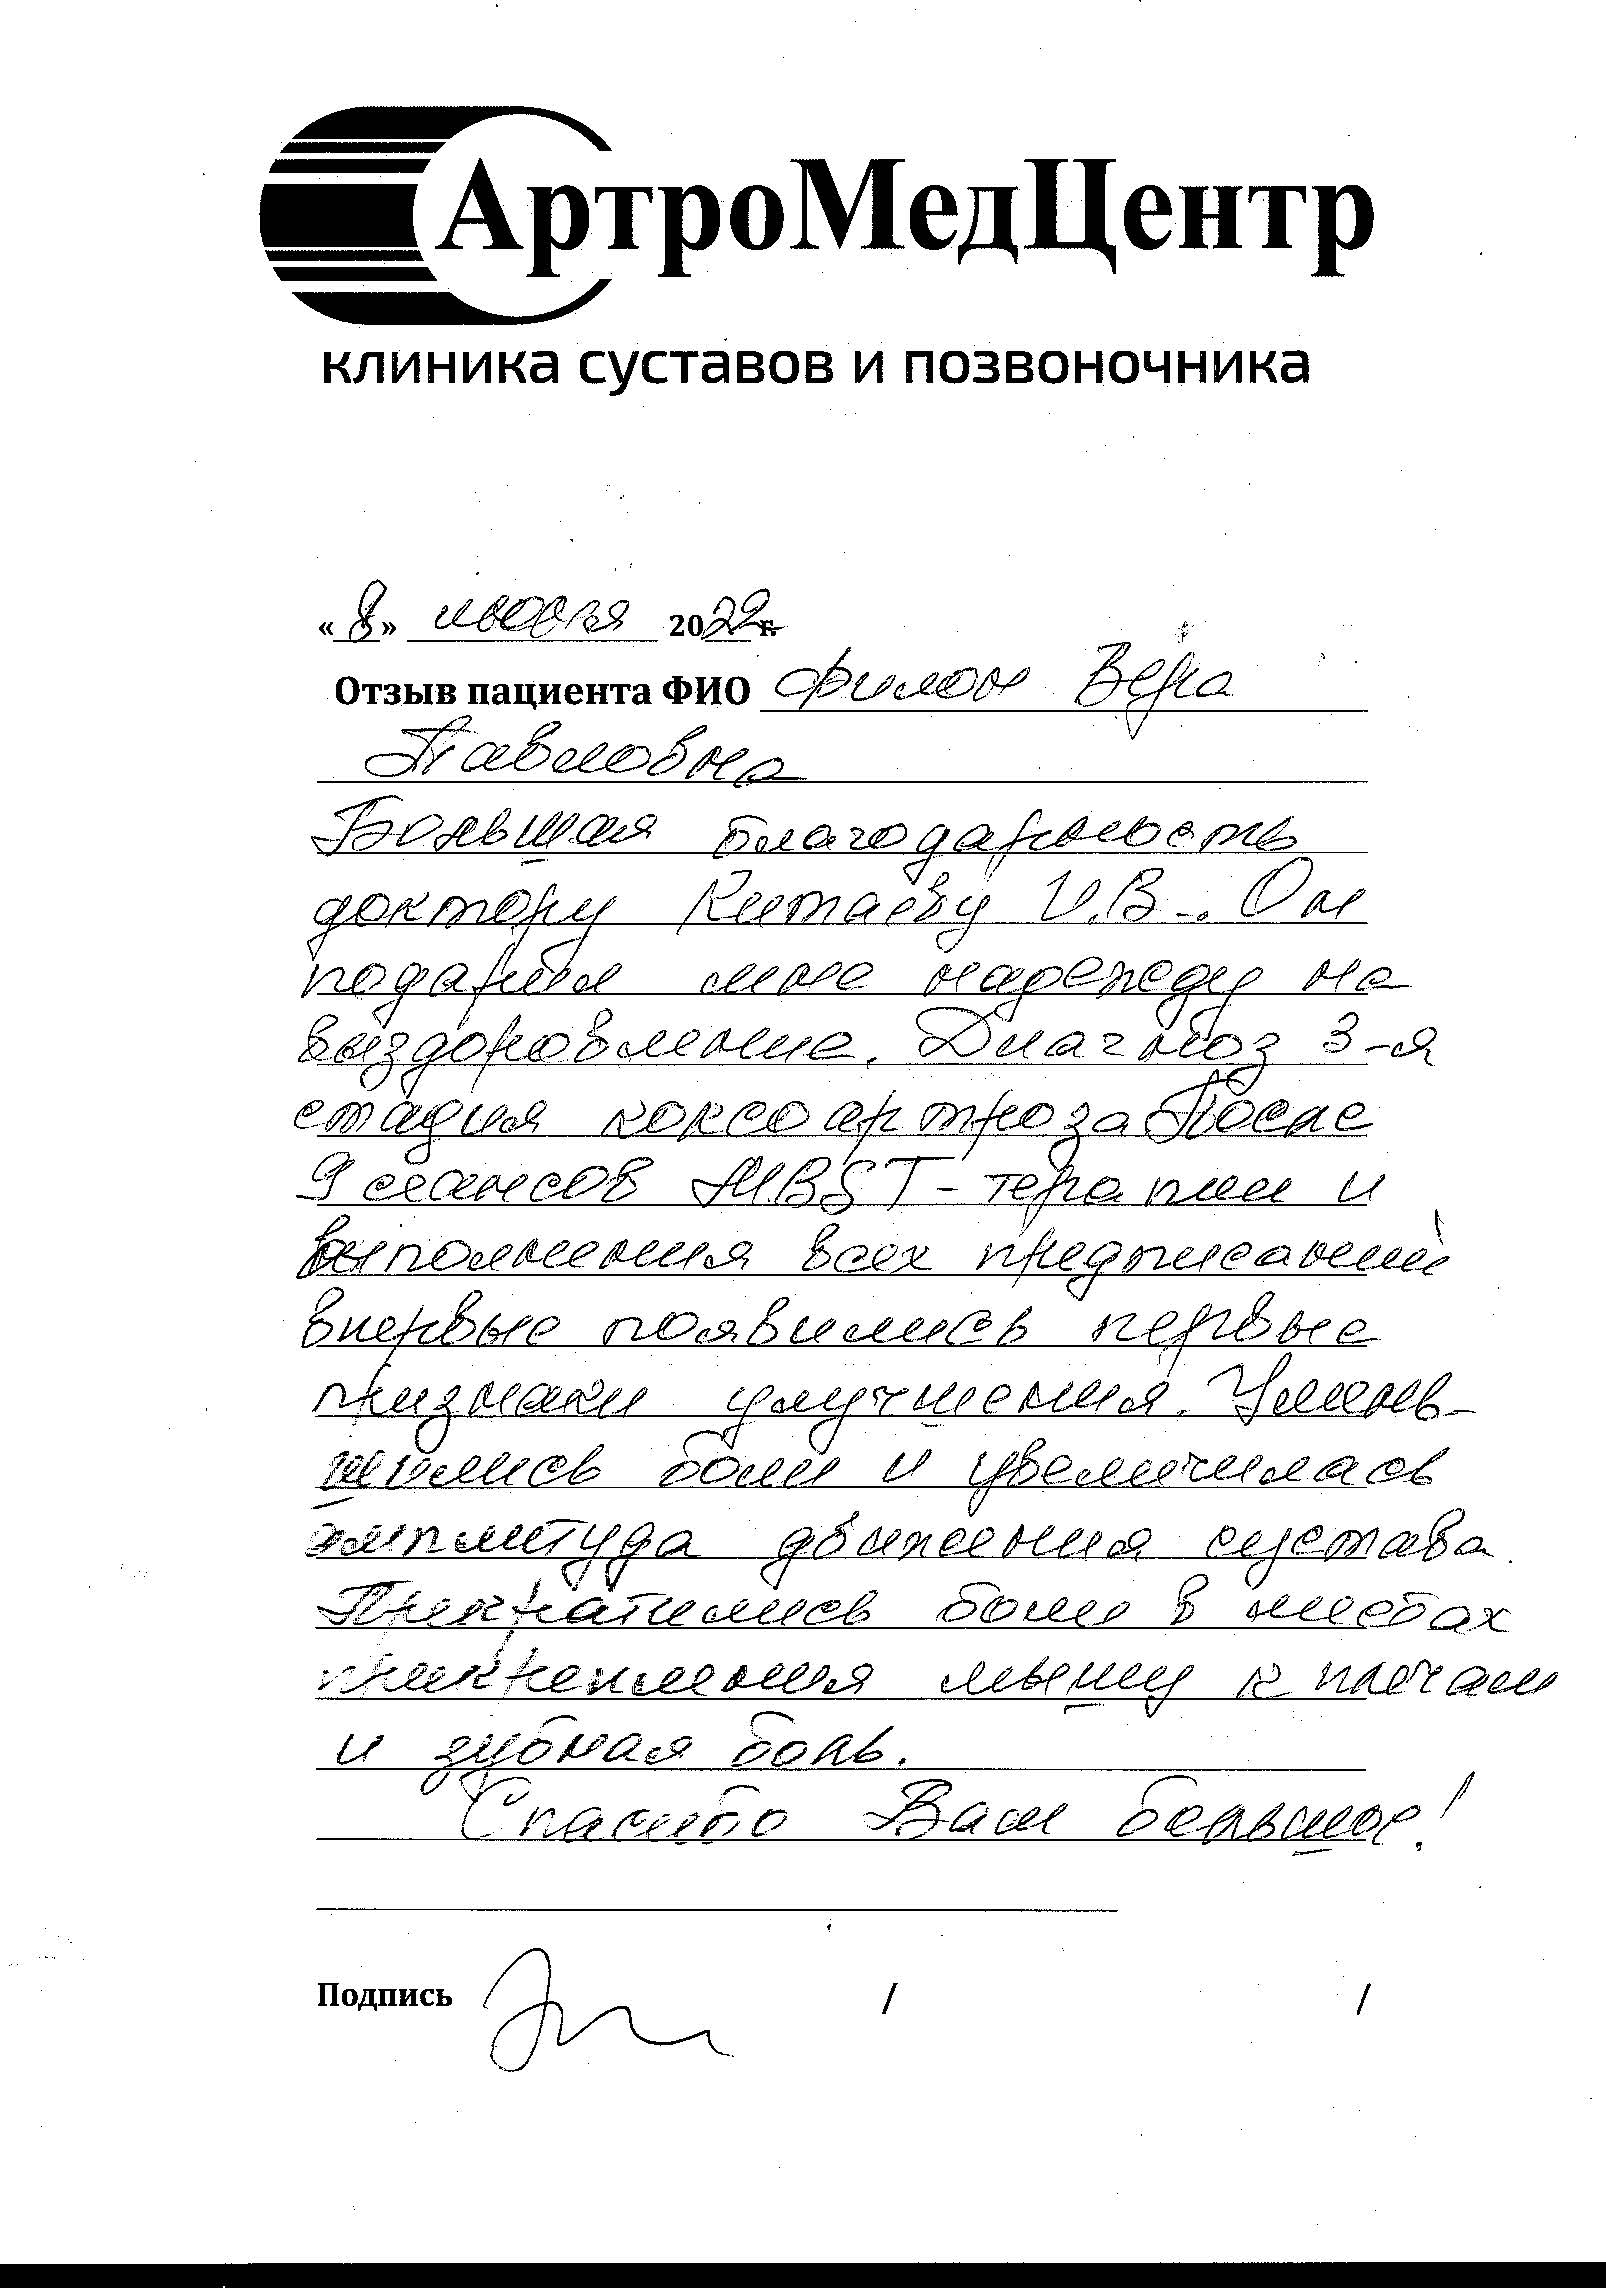 АртроМедЦентр
клиника суставов и позвоночника
«8» июля 2022 г.
Отзыв пациента ФИО Филон Вера
Павловна
Большая благодарность
доктору Китаеву И.В.. Он
подарил мне надежду на
выздоровление. Диагноз 3-я
стадия коксоартроза После
9 сеансов MBST-терапии и
выполнения всех предписаний
впервые появились первые
признаки улучшения. Умень-
шились боли и увеличилась
амплитуда движения сустава.
Прекратились боли в местах
прикрепления мышц к плечам
и зубная боль.
Спасибо Вам большое!
Подпись / /